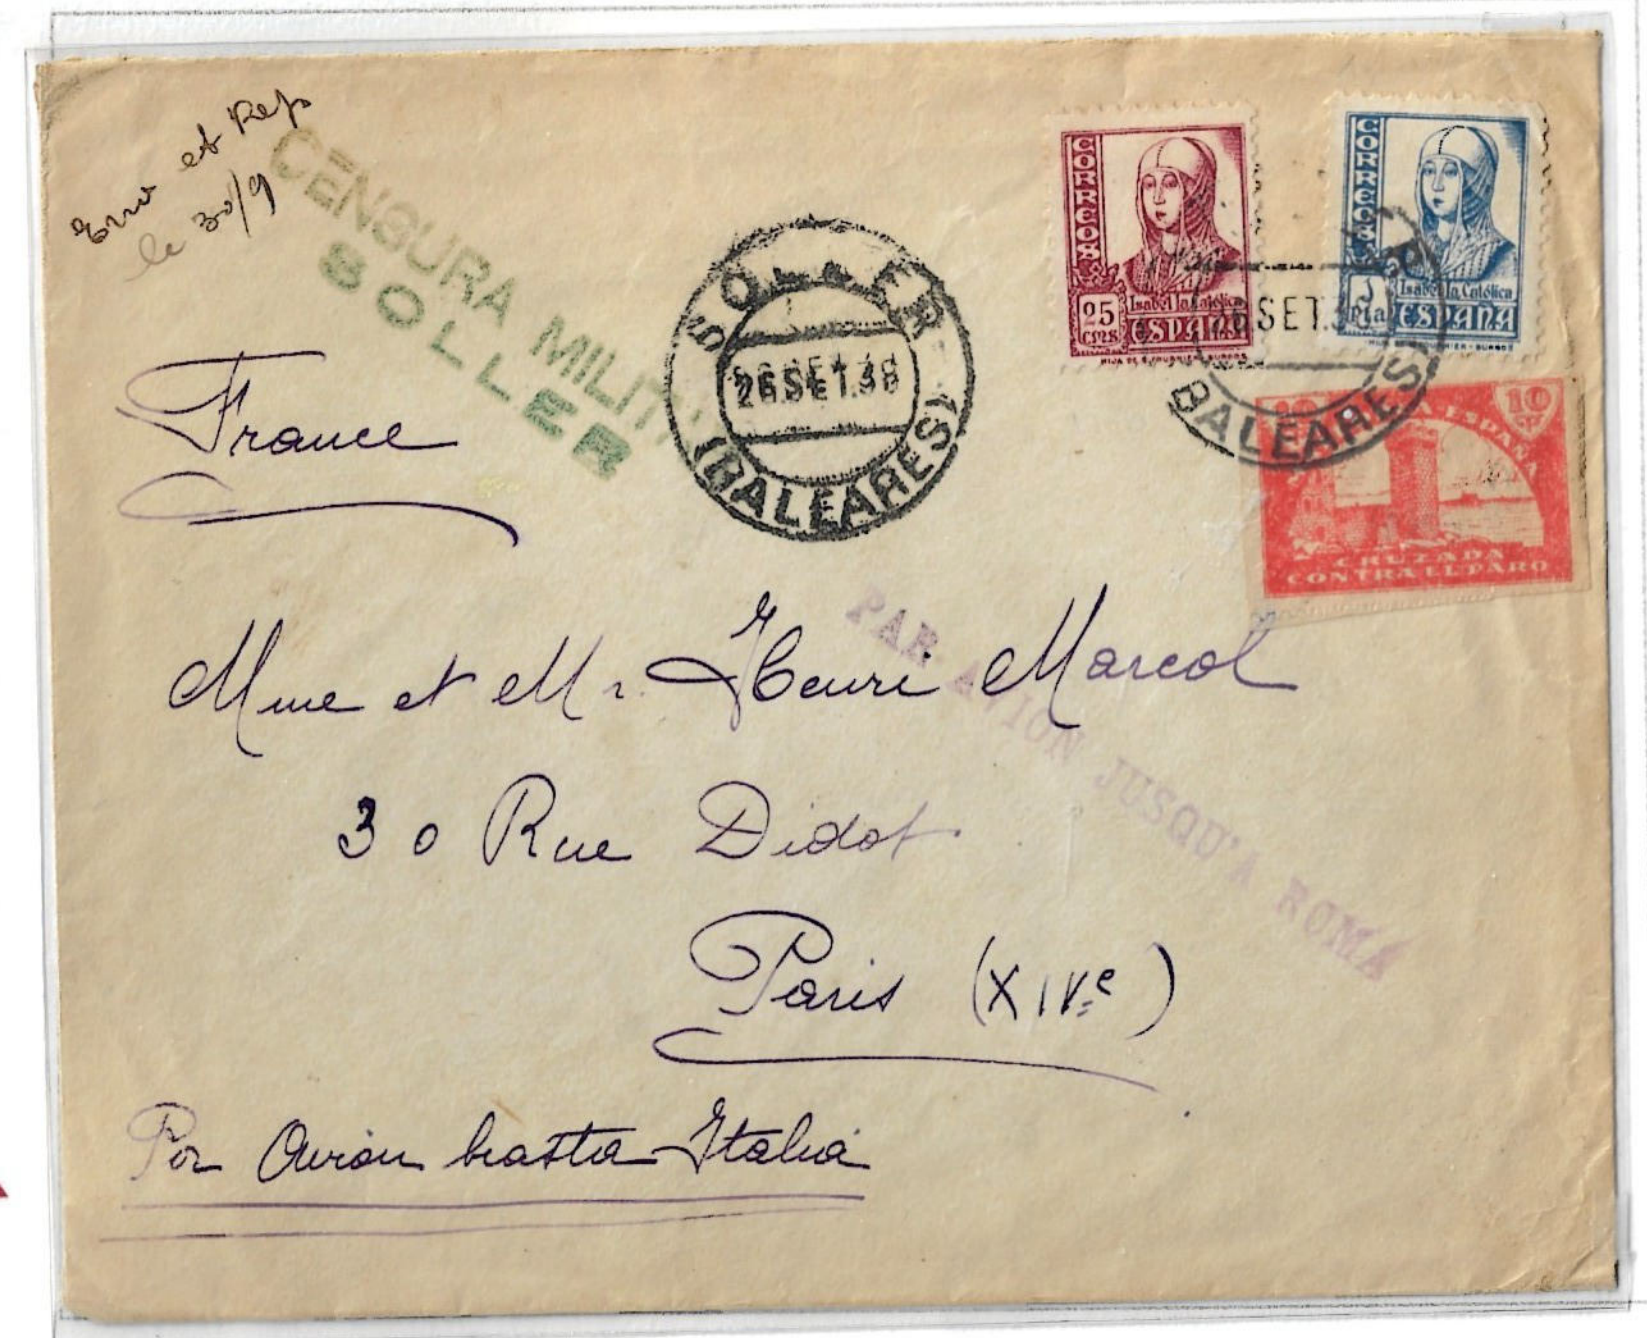 et Rep
le 30/9
CENSURA MILIT
SOLLER
SOLLER
26 SET.38
(BALEARES)
CORREOS
25
CMS
Isabel la Católica
ESPAÑA
CORREOS
1
Pta
Isabel la Católica
ESPAÑA
26 SET.38
BALEARES)
10
ESPAÑA
CRUZADA
CONTRA EL PARO
France
PAR AVION JUSQU'A ROMA
Mme et Mr Henri Marcol
30 Rue Didot
Paris (XIVe)
Por Avion hasta Italia